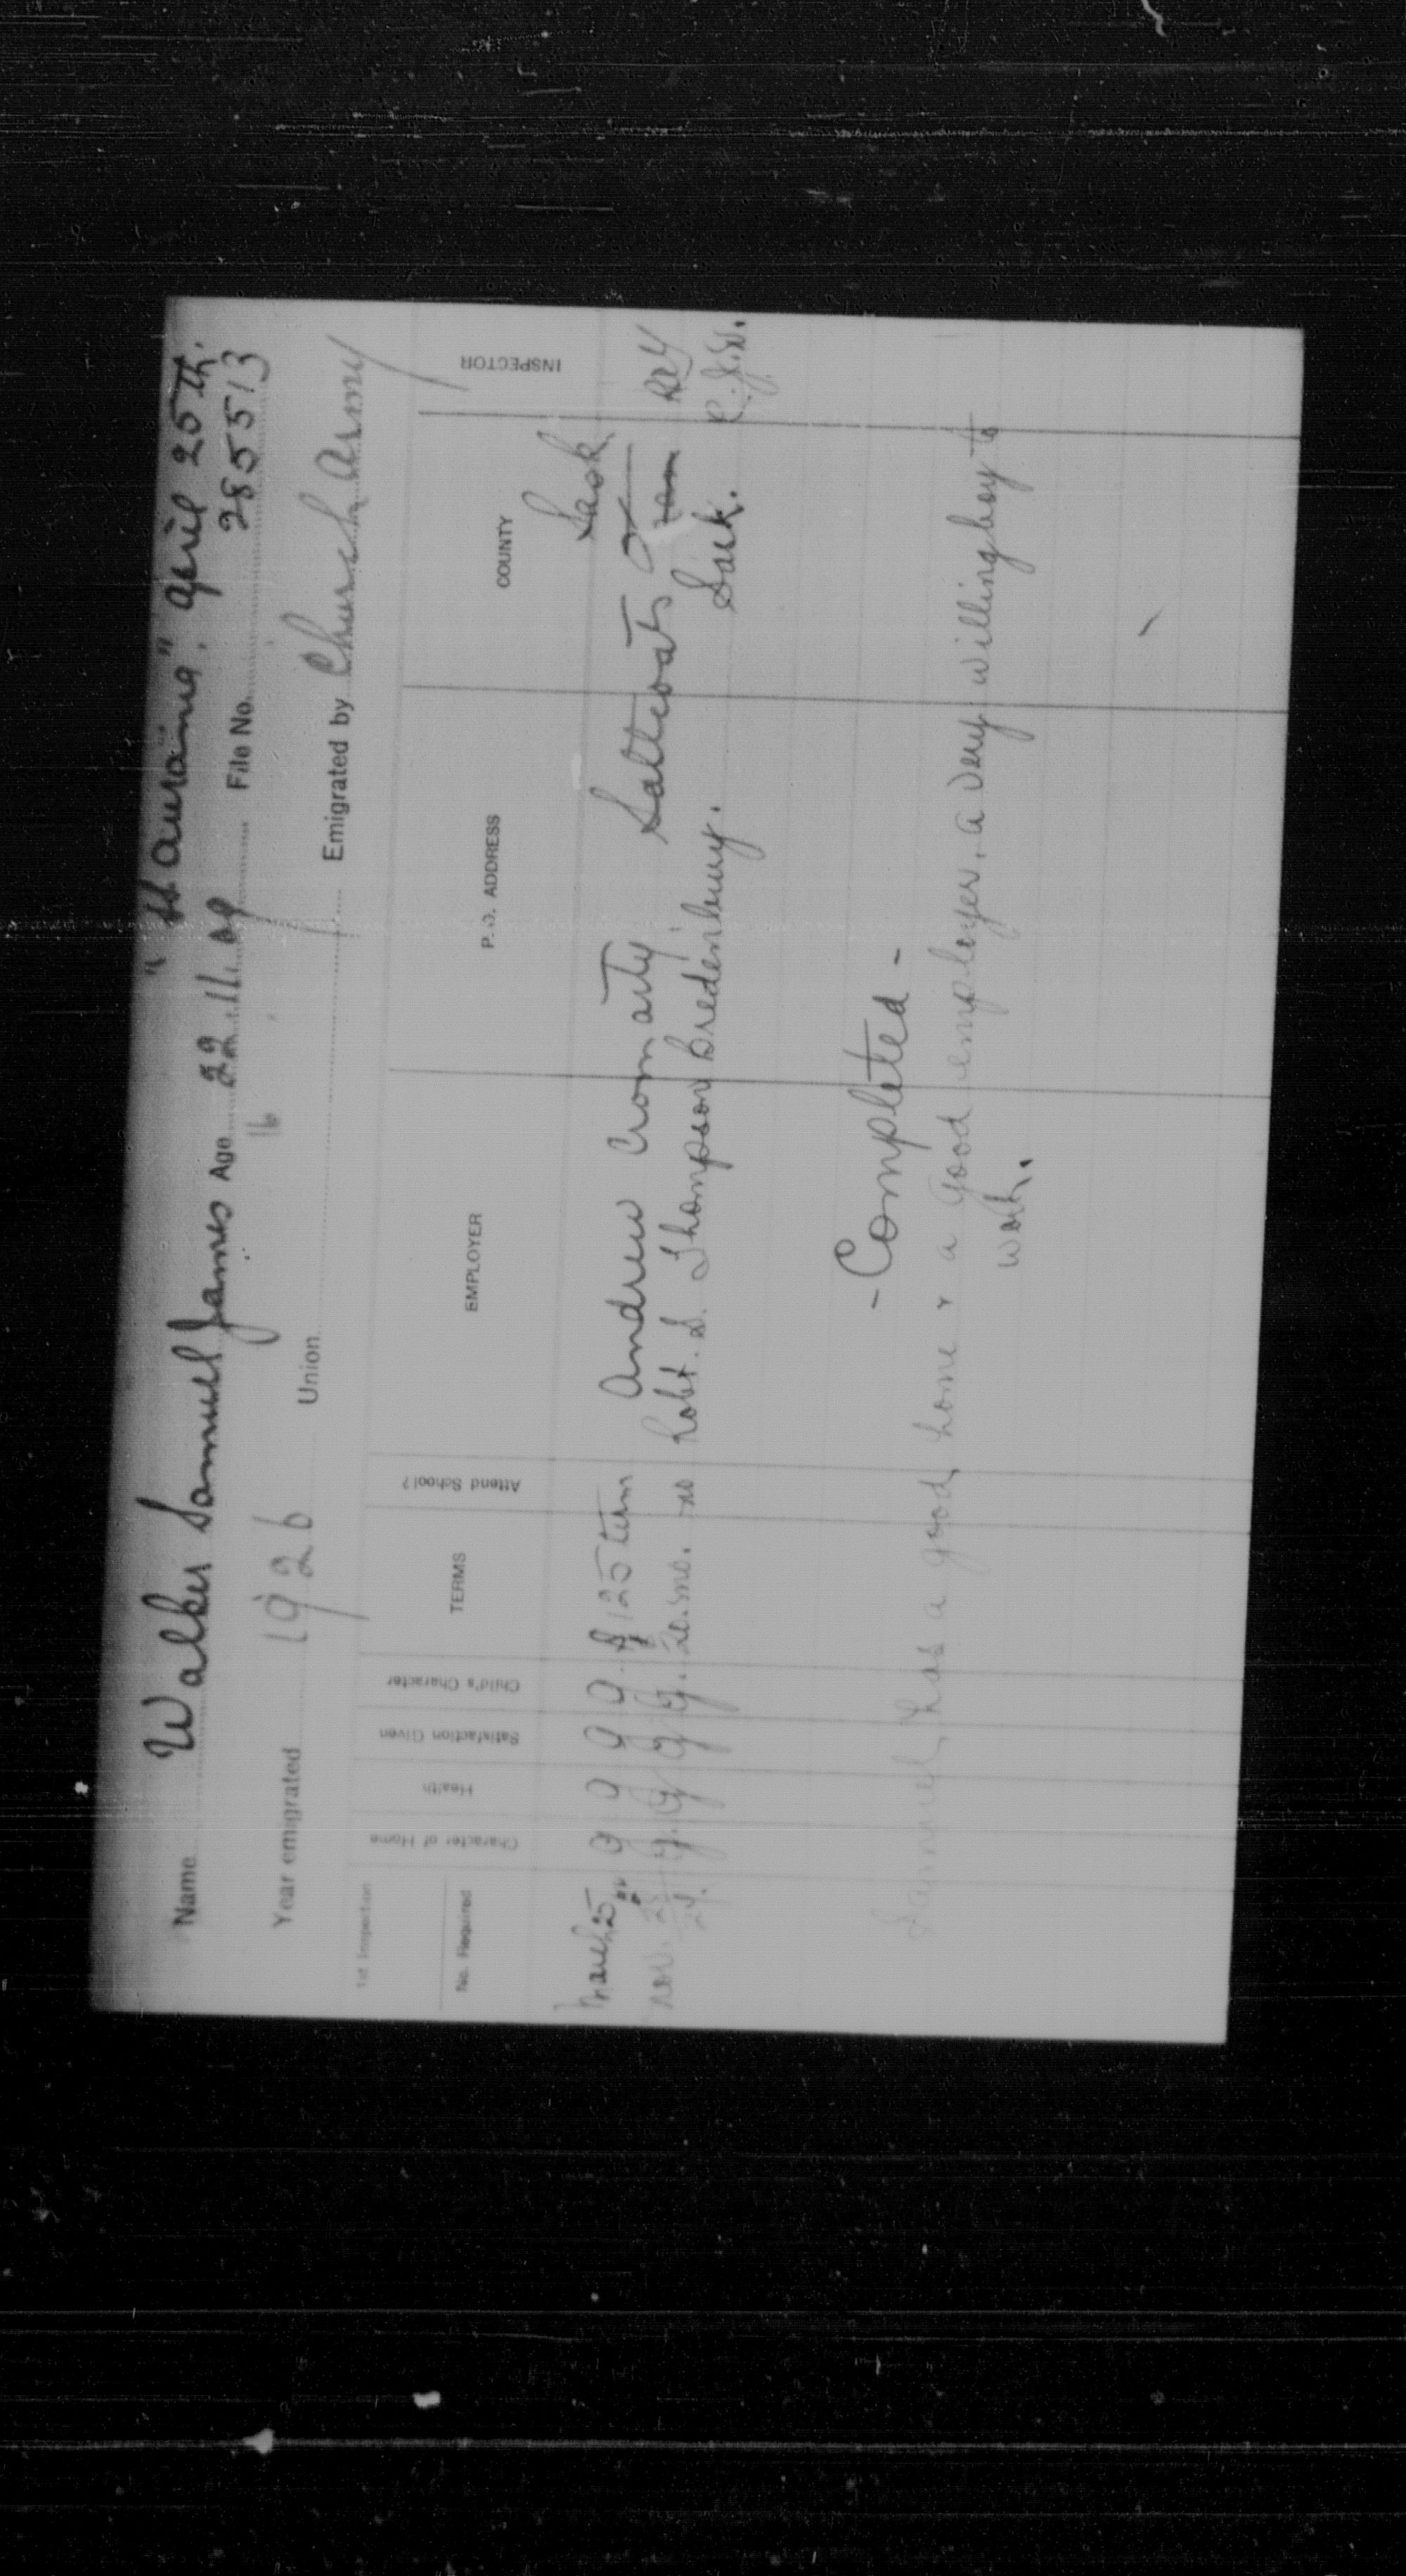 "Ausonia". April 25th.
Name Walker Samuel James Age 22.11.09 File No. 285513
16
Year emigrated 1926 Union Emigrated by Church Army
1st Inspection
No. Required
Character of Home Health Satisfaction Given Child's Character TERMS Attend School? EMPLOYER P.O. ADDRESS COUNTY INSPECTOR
Sask
March 25 g g g g $125 term Andrew Cromarty Saltcoats
Nov. g. g. g. g. 20. mo. no Robt. S. Thompson Bredenbury. Sask. C.J.W.
- Completed -
Samuel has a good home + a good employer, a very willing boy to
work.